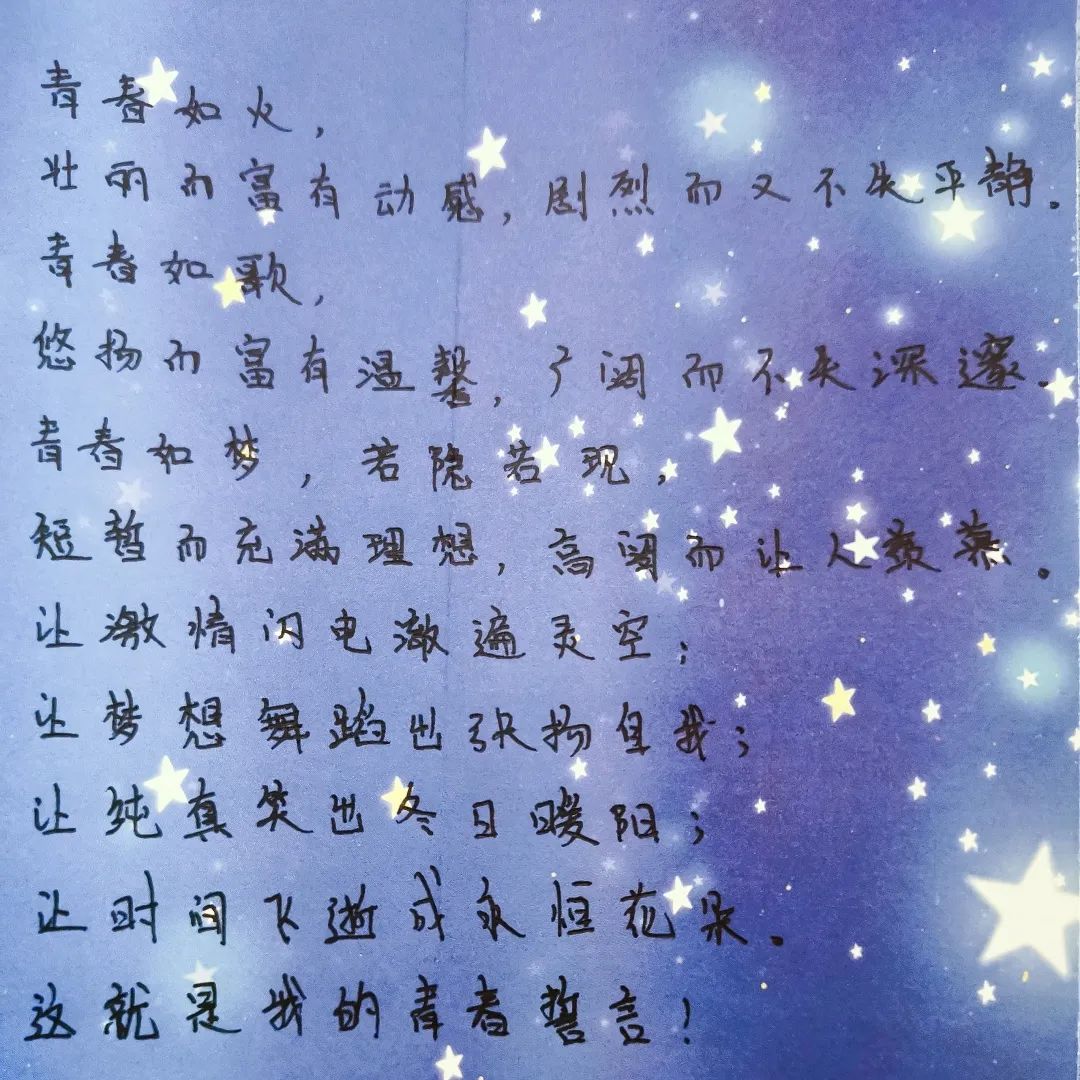 青春如火，
壮丽而富有动感，剧烈而又不失平静。
青春如歌，
悠扬而富有温馨，广阔而不失深邃。
青春如梦，若隐若现，
短暂而充满理想，高阔而让人羡慕。
让激情闪电激遍灵空；
让梦想舞蹈出张扬自我；
让纯真笑出冬日暖阳；
让时间飞逝成永恒花朵。
这就是我的青春誓言！